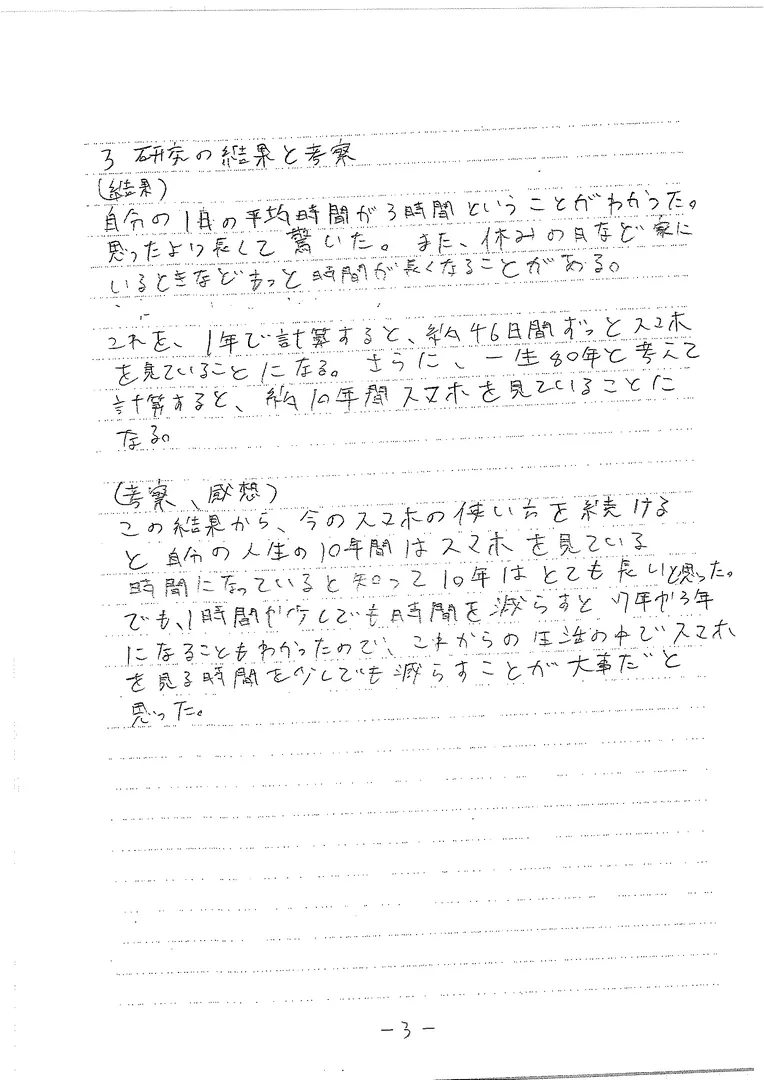 3 研究の結果と考察
(結果)
自分の1日の平均時間が3時間ということがわかった。
思ったより長くて驚いた。また、休みの日など家に
いるときなどもっと時間が長くなることがある。
これを、1年で計算すると、約46日間ずっとスマホ
を見ていることになる。さらに、一生80年と考えて
計算すると、約10年間スマホを見ていることに
なる。
(考察、感想)
この結果から、今のスマホの使い方を続ける
と自分の人生の10年間はスマホを見ている
時間になっていると知って10年はとても長いと思った。
でも、1時間が少しでも時間を減らすと7年か3年
になることもわかったので、これからの生活の中でスマホ
を見る時間を少しでも減らすことが大事だと
思った。
-3-